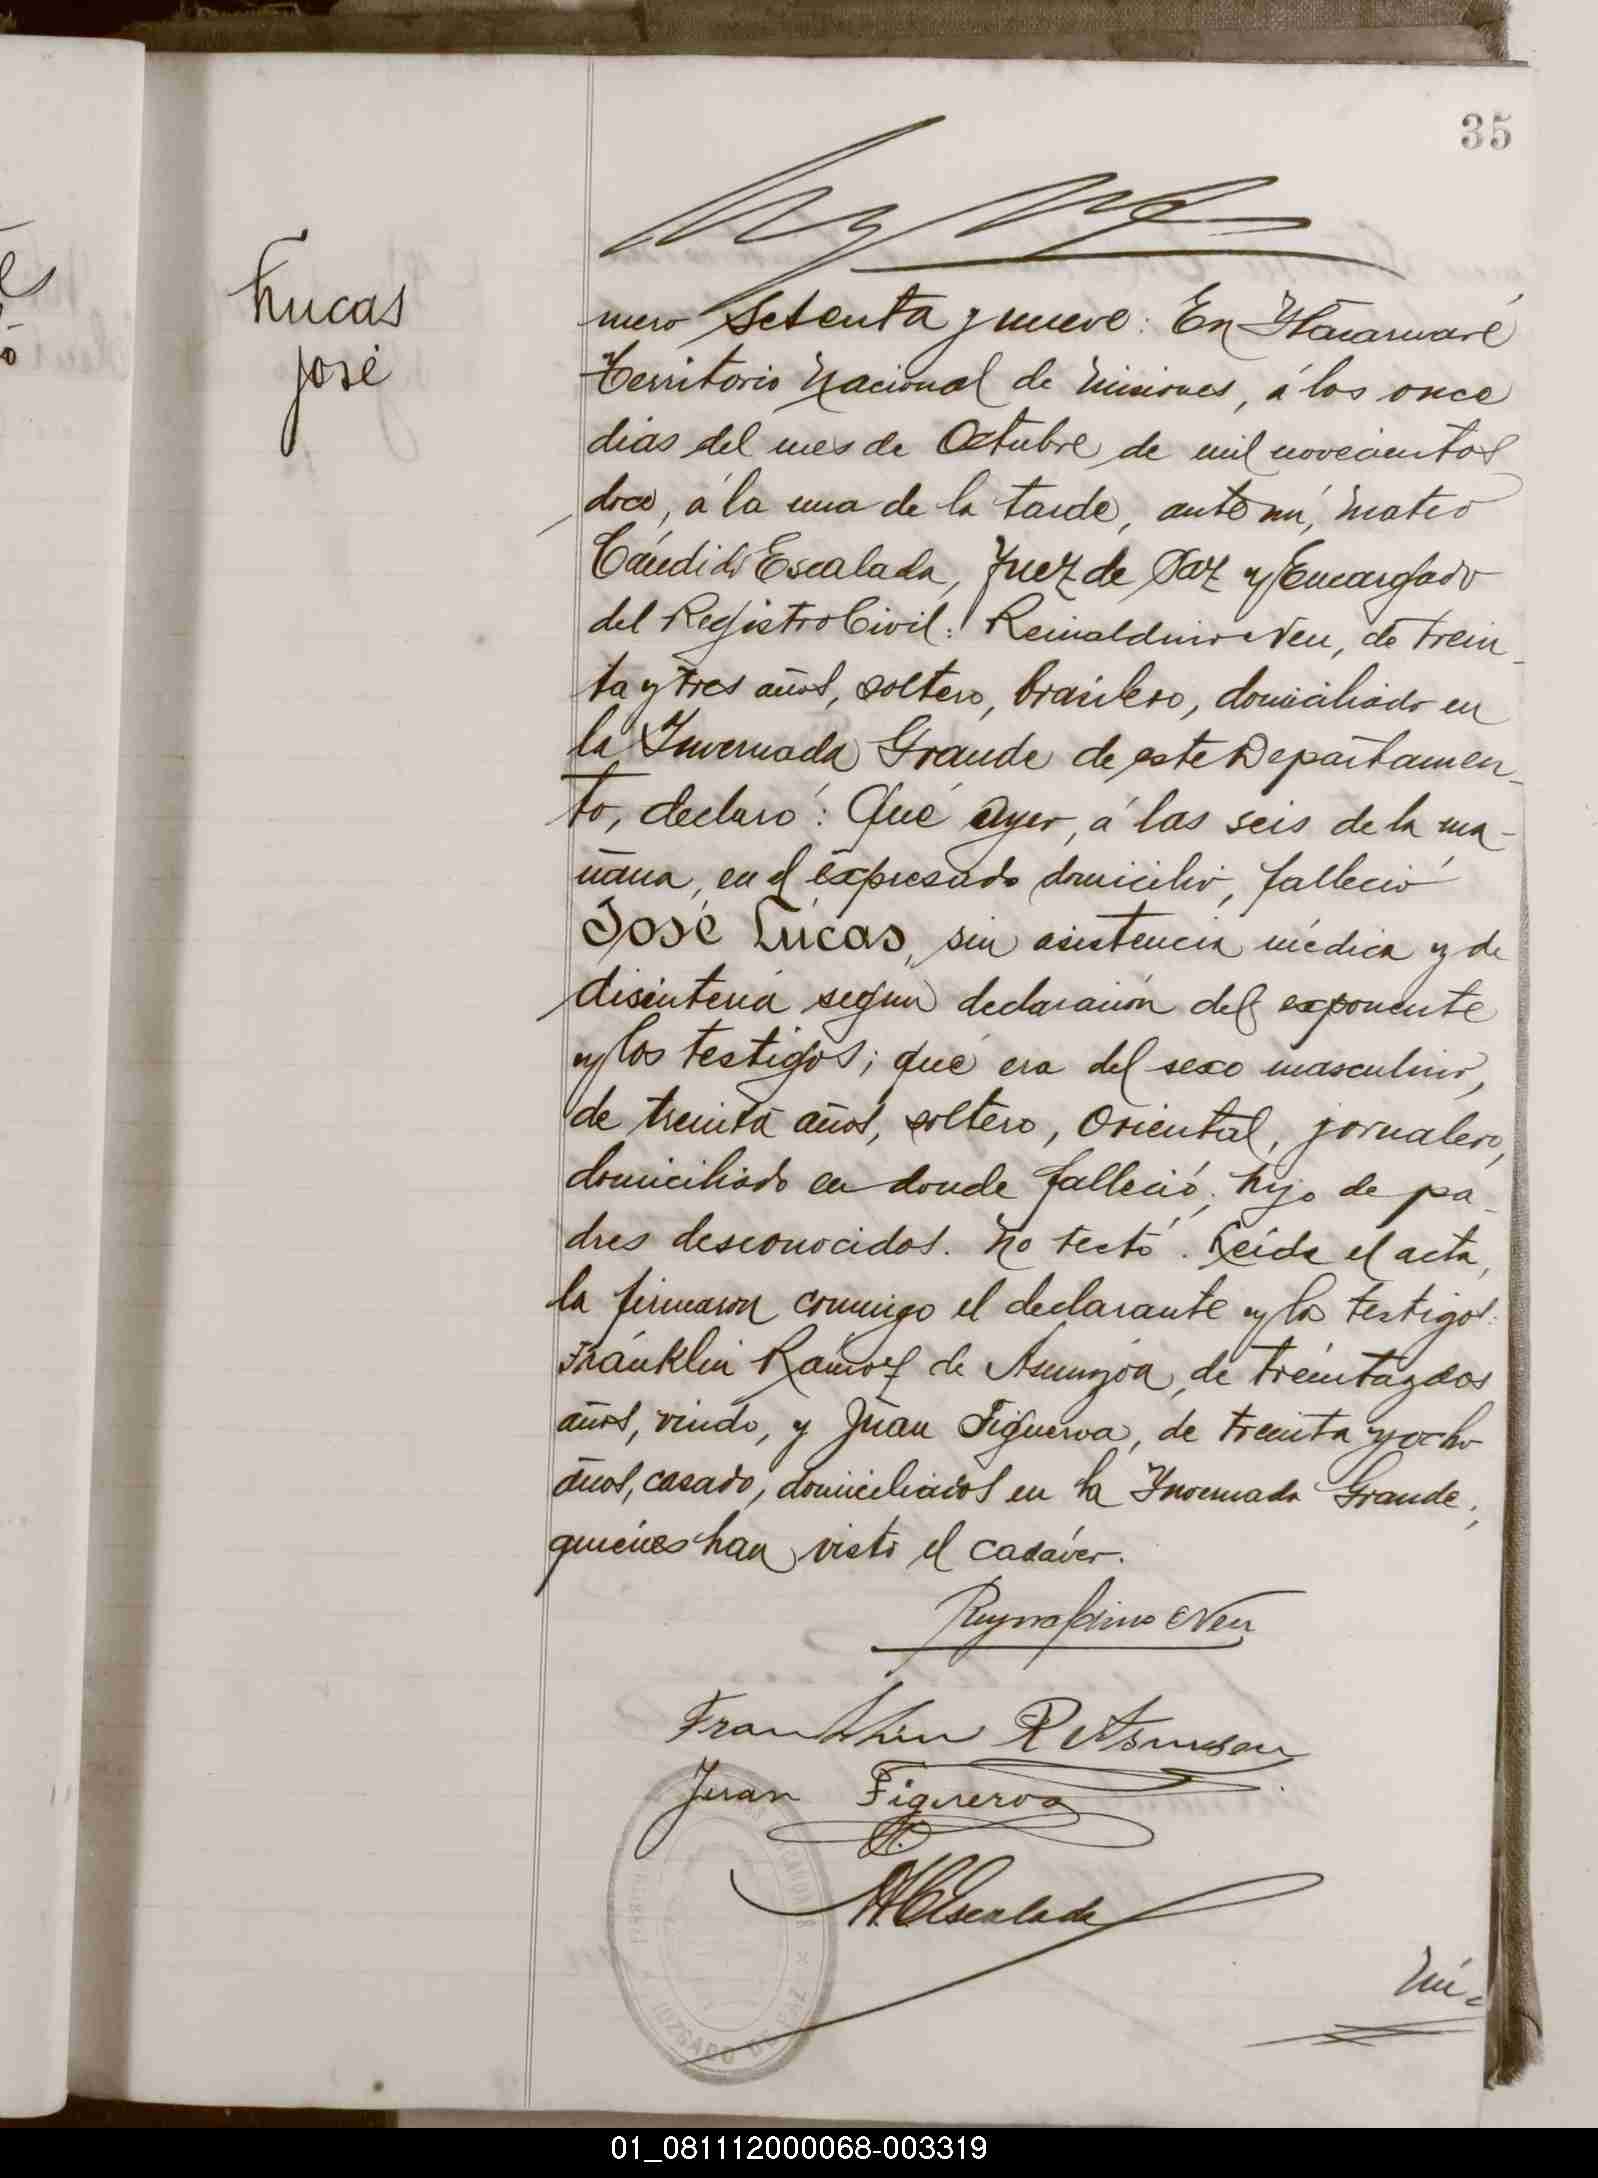 35
Lucas
José
mero Setenta y nueve: En Itacaruaré
Territorio Nacional de Misiones, á los once
dias del mes de Octubre de mil novecientos
doce, á la una de la tarde, ante mí, Mateo
Cándido Escalada, Juez de Paz y Encargado
del Registro Civil: Reinaldino Neu, de trein_
ta y tres años, soltero, brasilero, domiciliado en
la Invernada Grande de este Departamen_
to, declaró: Qué ayer, á las seis de la ma-
ñana, en el expresado domicilio, falleció
José Lucas, sin asistencia médica y de
disinteria segun declaracion del exponente
y los testigos; qué era del sexo masculino,
de treinta años, soltero, Oriental, jornalero,
domiciliado en donde falleció; hijo de pa_
dres desconocidos. No testó. Leida el acta,
la firmaron conmigo el declarante y los testigos:
Fránklin Ramoz de Asumçoa, de treinta y dos
años, viudo, y Juan Figueroa, de treinta y ocho
años, casado, domiciliados en la Invernada Grande;
quiénes han visto el cadáver.
Reynaldino Neu
Franklin R Asumson
Juan Figueroa
M.C.Escalada
JUZGADO DE PAZ
Nú-
01_081112000068-003319